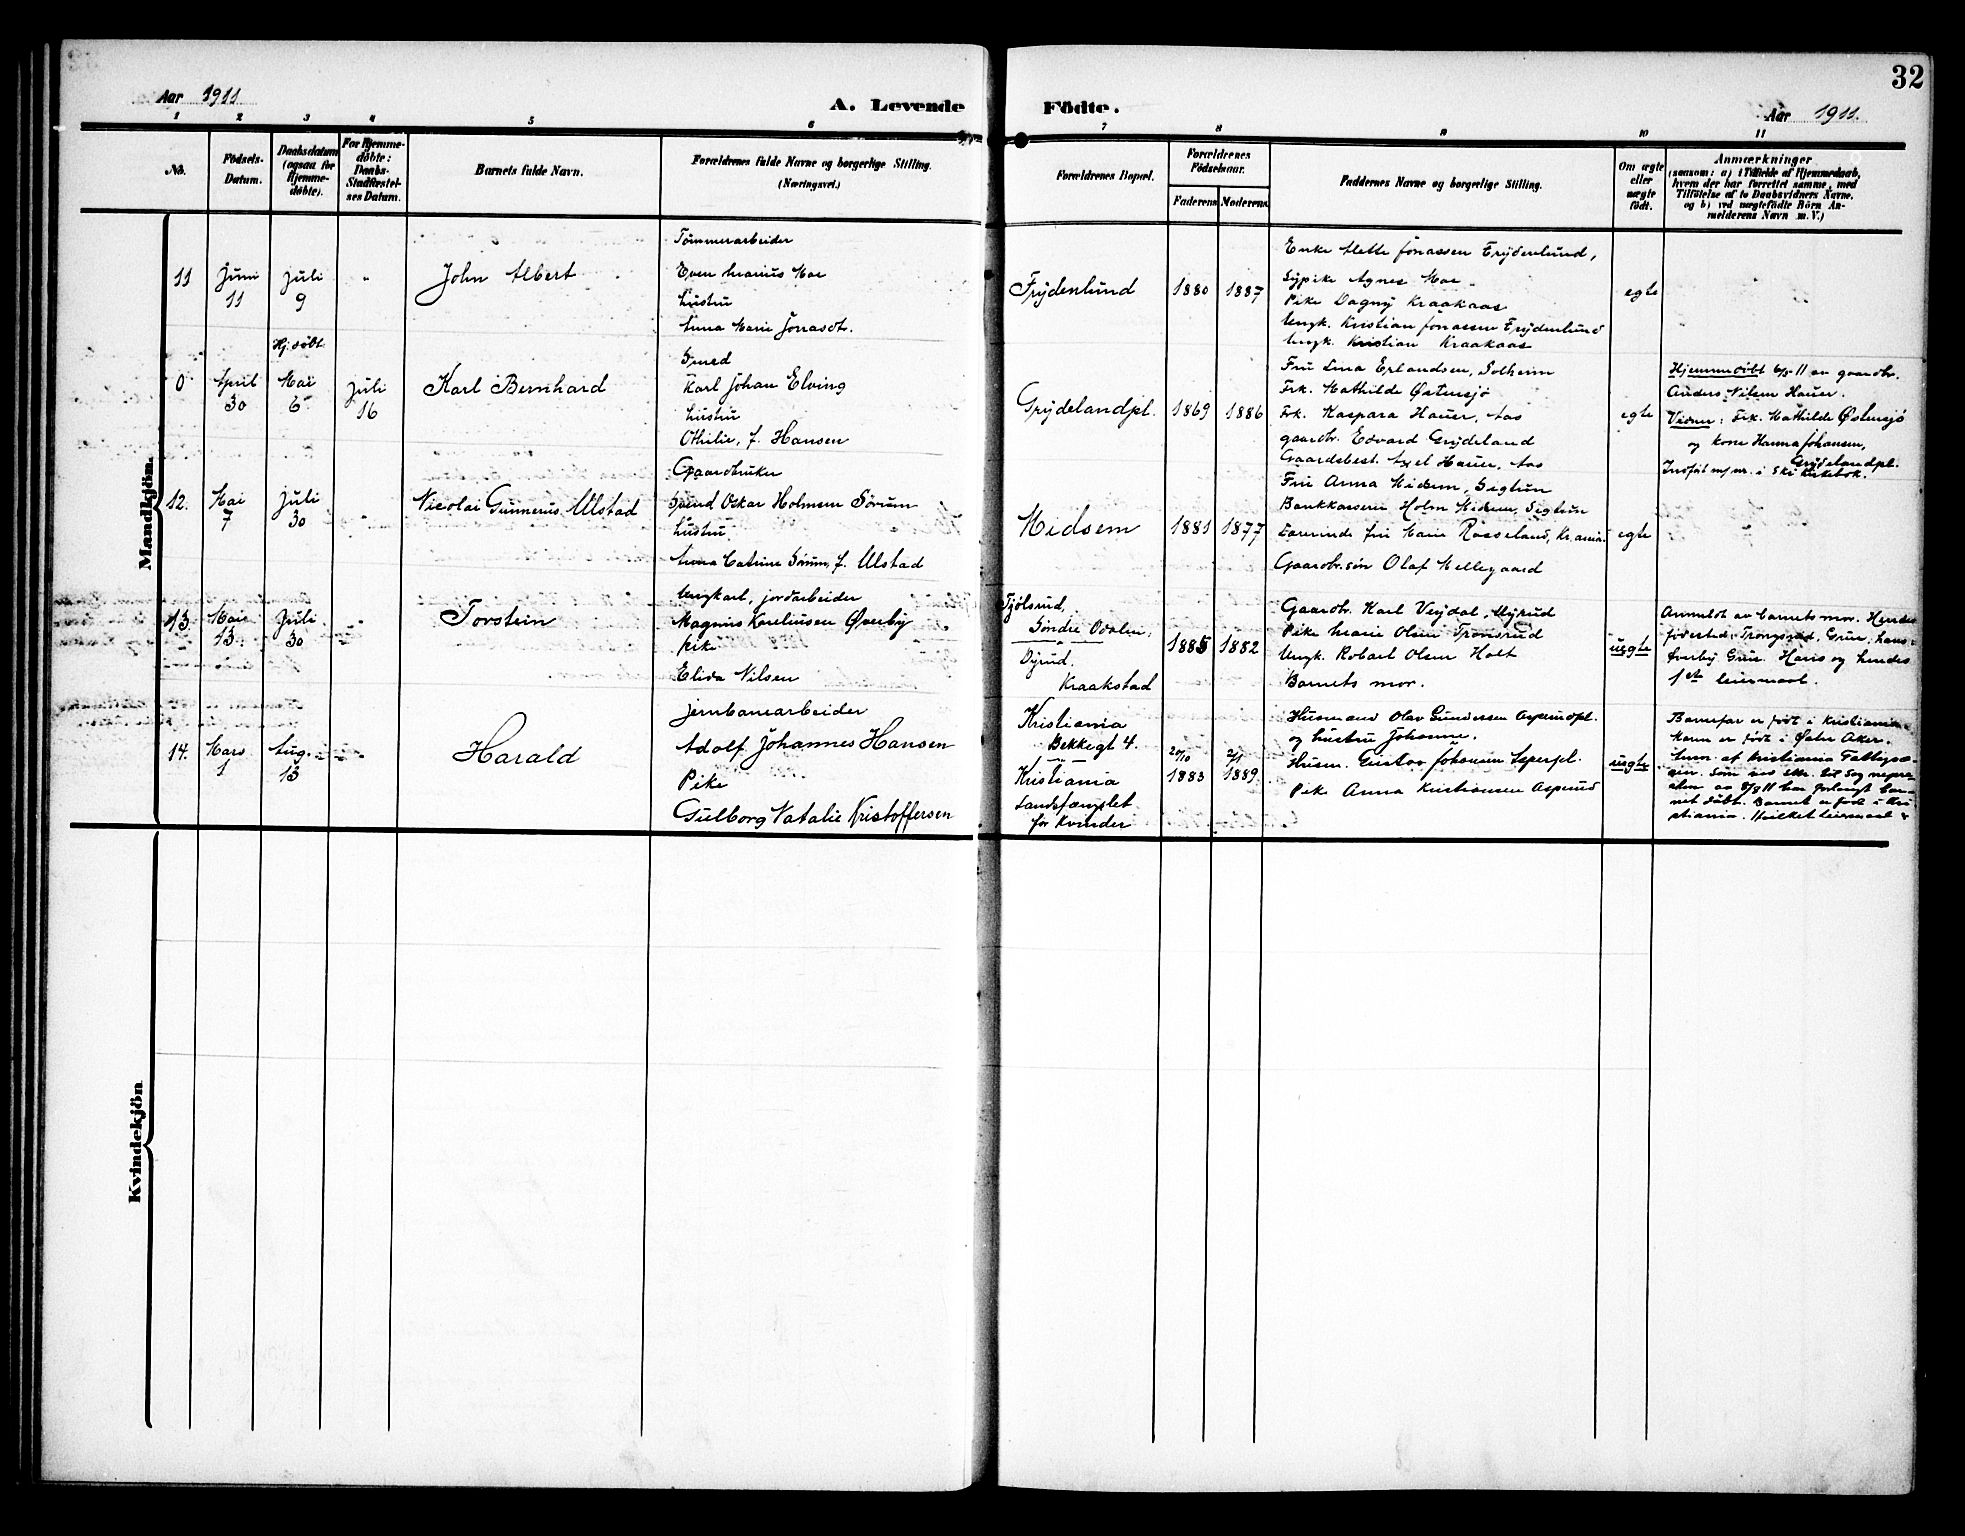 32
Aar 1911
A. Levende Födte.
Aar 1911.
1 2 3 4 5 6 7 8 9 10 11
No.
Födsels-Datum.
Daabsdatum (ogsaa for Hjemmedöbte).
For Hjemmedöbte: Daabs-Stadfæstelses Datum.
Barnets fulde Navn.
Forældrenes fulde Navne og borgerlige Stilling.
(Næringsvei.)
Forældrenes Bopæl.
Forældrenes Födselsaar.
Faderens Moderens
Faddernes Navne og borgerlige Stilling.
Om ægte eller uægte födt.
Anmærkninger
(saasom: a) i Tilfælde af Hjemmedaab,
hvem der har forrettet samme, med
Tilföielse af to Daabsvidners Navne,
og b) ved uægtefödte Börn Anmelderens Navn m. V.)
Mandkjön.
11
Juni
11
Juli
9
"
John Albert
Tømmerarbeider
Even Marius Moe
Hustru
Anna Marie Jonasdt.
Frydenlund
1880
1887
Enke Mette Jonassen Frydenlund,
Sypike Agnes Moe
Pike Dagny Kraakaas
Ungk. Kristian Jonassen Frydenlund
Ungk. Kristian Kraakaas
egte
0
April
30
Hj.døbt
Mai
6
Juli
16
Karl Bernhard
Smed
Karl Johan Elving
Hustru
Othilie, f. Hansen
Grydelandpl.
1869
1886
Fru Lina Erlandsen, Solheim
Frk. Mathilde Østensjø
Frk. Kaspara Hauer, Aas
gaardbr. Edvard Grydeland
Gaardsbest. Axel Hauer, Aas
egte
Hjemmedøbt 6/5 11 av gaardbr.
Anders Nilsen Hauer.
Vidner: Frk. Mathilde Østensjø
og kone Hanna Johansen,
Grydelandpl.
Indført m/nr. i Ski kirkebok.
12.
Mai
7
Juli
30
"
Nicolai Gunnerius Ulstad
Gaardbruker
Svend Oskar Holmsen Sørum
Hustru
Anna Catrine Sørum, f. Ulstad
Midsem
1881
1877
Fru Anna Midsem, Sigtun
Bankkasserer Holm Midsem, Sigtun
Lærerinde frk Marie Rosseland, Kr.ania.
Gaardbr.søn Olaf Mellegaard
egte
13.
Mai
13.
Juli
30
"
Torstein
Ungkarl, jordarbeider
Magnus Kareliusen Øverby
Pike
Elida Nilsen
Tjølsrud,
Søndre Odalen;
Dyrud,
Kraakstad
1885
1882
Gaardbr. Karl Vejdal, Myrud
Pike Marie Olsen Tronsrud
Ungk. Robert Olsen Holt
Barnets mor.
uegte
Anmeldt av barnets mor. Hendes
fødested: Trongsrud, Grue; hans:
Øverby Grue. Hans og hendes
1ste leiermaal.
14.
Mars
1
Aug.
13
"
Harald
Jernbanearbeider
Adolf Johannes Hansen
Pike
Gulborg Natalie Kristoffersen
Kristiania
Bekkegt 4.
Kristiania
Landsfængslet
for Kvinder
20/10
1883
2/1
1889
Husmand Olav Gundersen Aspenudpl.
og hustru Johanne.
Husm. Gustav Johansen
Pike Anna Kristiansen
uegte
Barnefar er født i Kristiania.
Moren er født i Østre Aker.
Anm. af Kristiania Fattigvæsen.
har forlangt barnet
døbt. Barnet er født i Kristiania.
Hvilket leiermaal ?
Kvindekjön